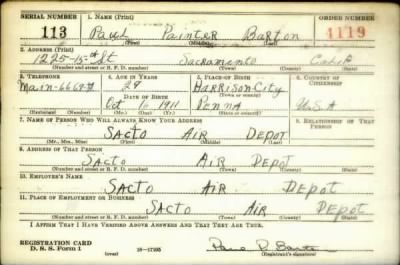 SERIAL NUMBER 1. NAME (Print) ORDER NUMBER
113 Paul Painter Barton 4119
(First) (Middle) (Last)
2. ADDRESS (Print)
1225-15th St Sacramento Calif
(Number and street or R. F. D. number) (Town) (County) (State)
3. TELEPHONE 4. AGE IN YEARS 5. PLACE OF BIRTH 6. COUNTRY OF CITIZENSHIP
Main-6669- 29 Harrison City
DATE OF BIRTH (Town or county)
Oct 1911 Penna USA
(Exchange) (Number) (Mo.) (Day) (Yr.) (State or country)
7. NAME OF PERSON WHO WILL ALWAYS KNOW YOUR ADDRESS 8. RELATIONSHIP OF THAT PERSON
SACTO AIR DEPOT
(Mr., Mrs., Miss) (First) (Middle) (Last)
9. ADDRESS OF THAT PERSON
SACTO AIR DEPOT
(Number and street or R. F. D. number) (Town) (County) (State)
10. EMPLOYER'S NAME
SACTO AIR DEPOT
11. PLACE OF EMPLOYMENT OR BUSINESS
SACTO AIR DEPOT
(Number and street or R. F. D. number) (Town) (County) (State)
I AFFIRM THAT I HAVE VERIFIED ABOVE ANSWERS AND THAT THEY ARE TRUE.
REGISTRATION CARD
D. S. S. Form 1 16-17105 Paul P. Barton
(over) (Registrant's signature)